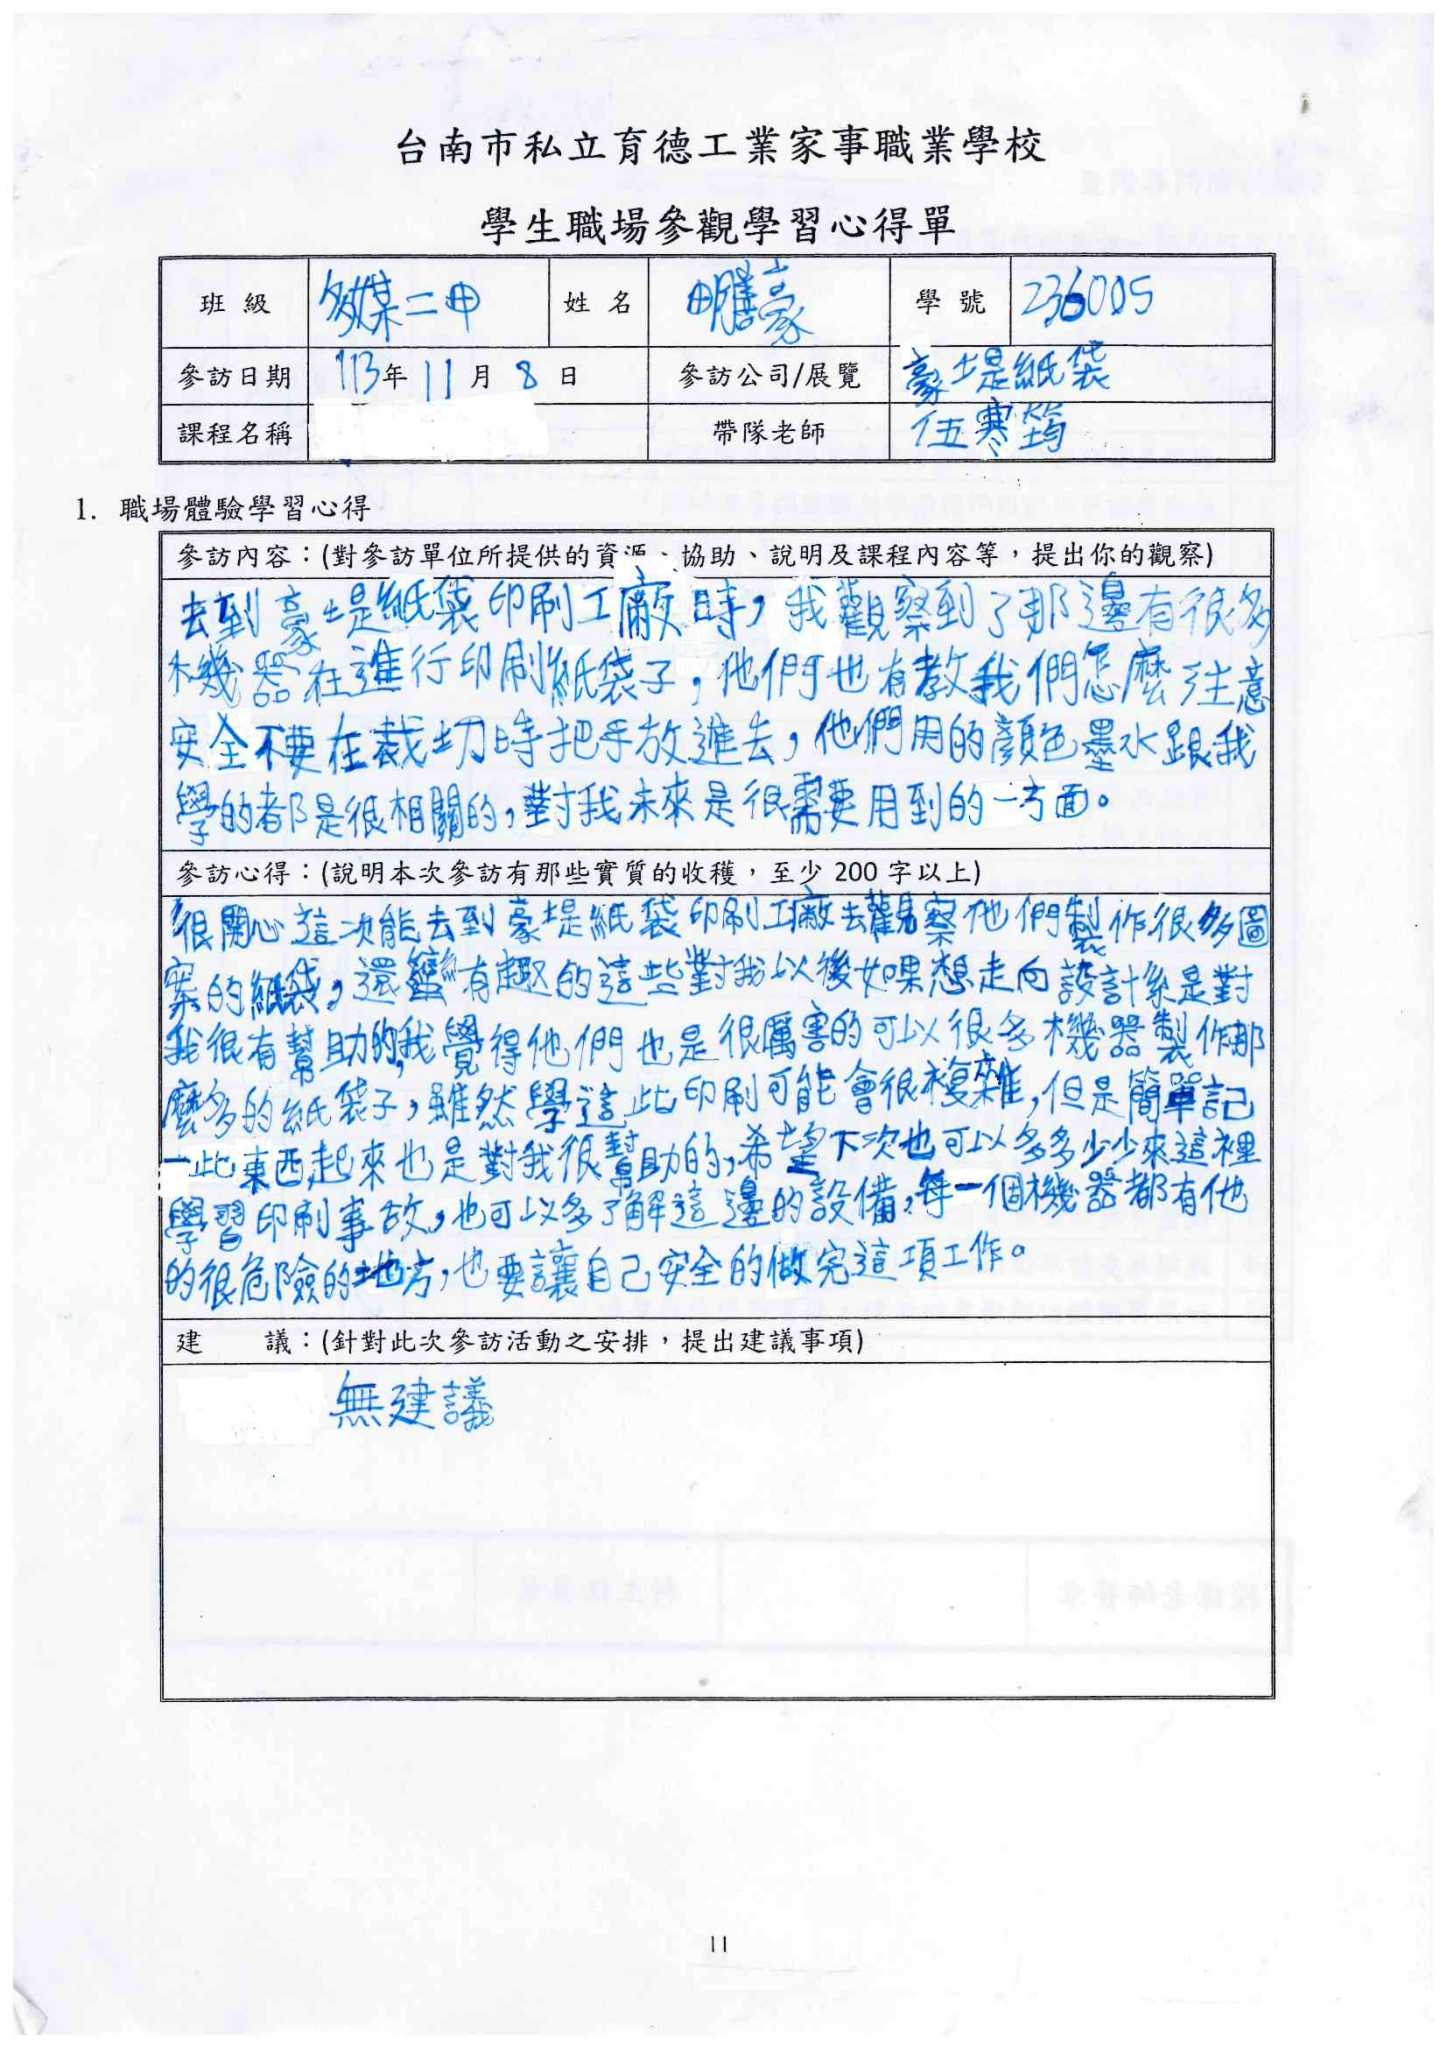 台南市私立育德工業家事職業學校
學生職場參觀學習心得單
班級 多媒二甲 姓名 學號 236005
參訪日期 113年11月8日 參訪公司/展覽 豪堤紙袋
課程名稱 帶隊老師 伍寒筠
1. 職場體驗學習心得
參訪內容：(對參訪單位所提供的資源、協助、說明及課程內容等，提出你的觀察)
去到豪堤紙袋印刷工廠時，我觀察到了那邊有很多
機器在進行印刷紙袋子，他們也有教我們怎麼注意
安全不要在裁切時把手放進去，他們用的顏色墨水跟我
學的都是很相關的，對我未來是很需要用到的一方面。
參訪心得：(說明本次參訪有那些實質的收穫，至少 200 字以上)
很開心這次能去到豪堤紙袋印刷工廠去觀察他們製作很多圖
案的紙袋，還蠻有趣的這些對我以後如果想走向設計系是對
我很有幫助的，我覺得他們也是很厲害的可以很多機器製作那
麼多的紙袋子，雖然學這些印刷可能會很複雜，但是簡單記
一些東西起來也是對我很幫助的，希望下次也可以多多少少來這裡
學習印刷事故，也可以多了解這邊的設備，每一個機器都有他
的很危險的地方，也要讓自己安全的做完這項工作。
建 議：(針對此次參訪活動之安排，提出建議事項)
無建議
11